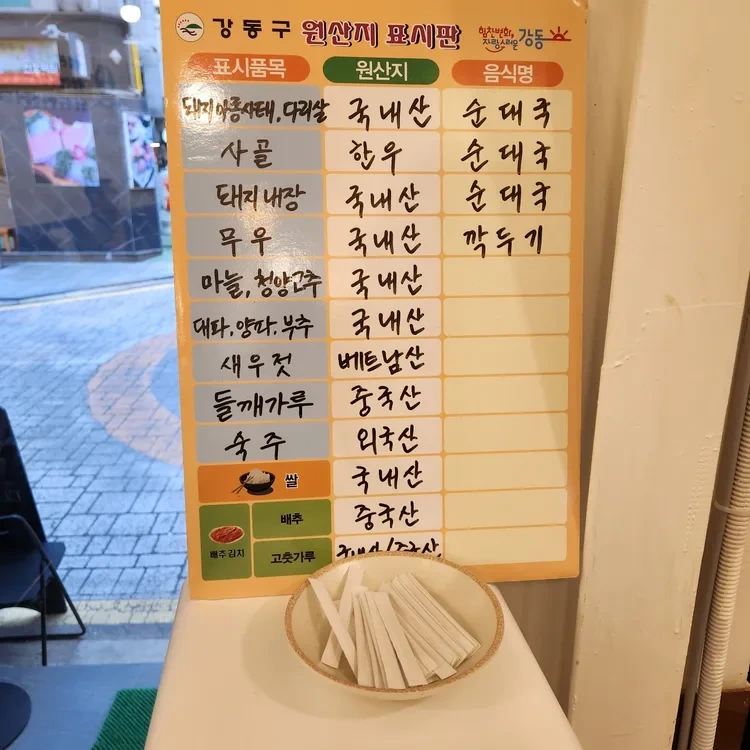 강동구 원산지 표시판 힘찬변화, 자랑스러운 강동
표시품목 원산지 음식명
돼지아롱사태, 다리살 국내산 순대국
사골 한우 순대국
돼지내장 국내산 순대국
무우 국내산 깍두기
마늘, 청양고추 국내산
대파, 양파, 부추 국내산
새우젓 베트남산
들깨가루 중국산
숙주 외국산
쌀 국내산
배추김치 배추 중국산
고춧가루 국내산/중국산